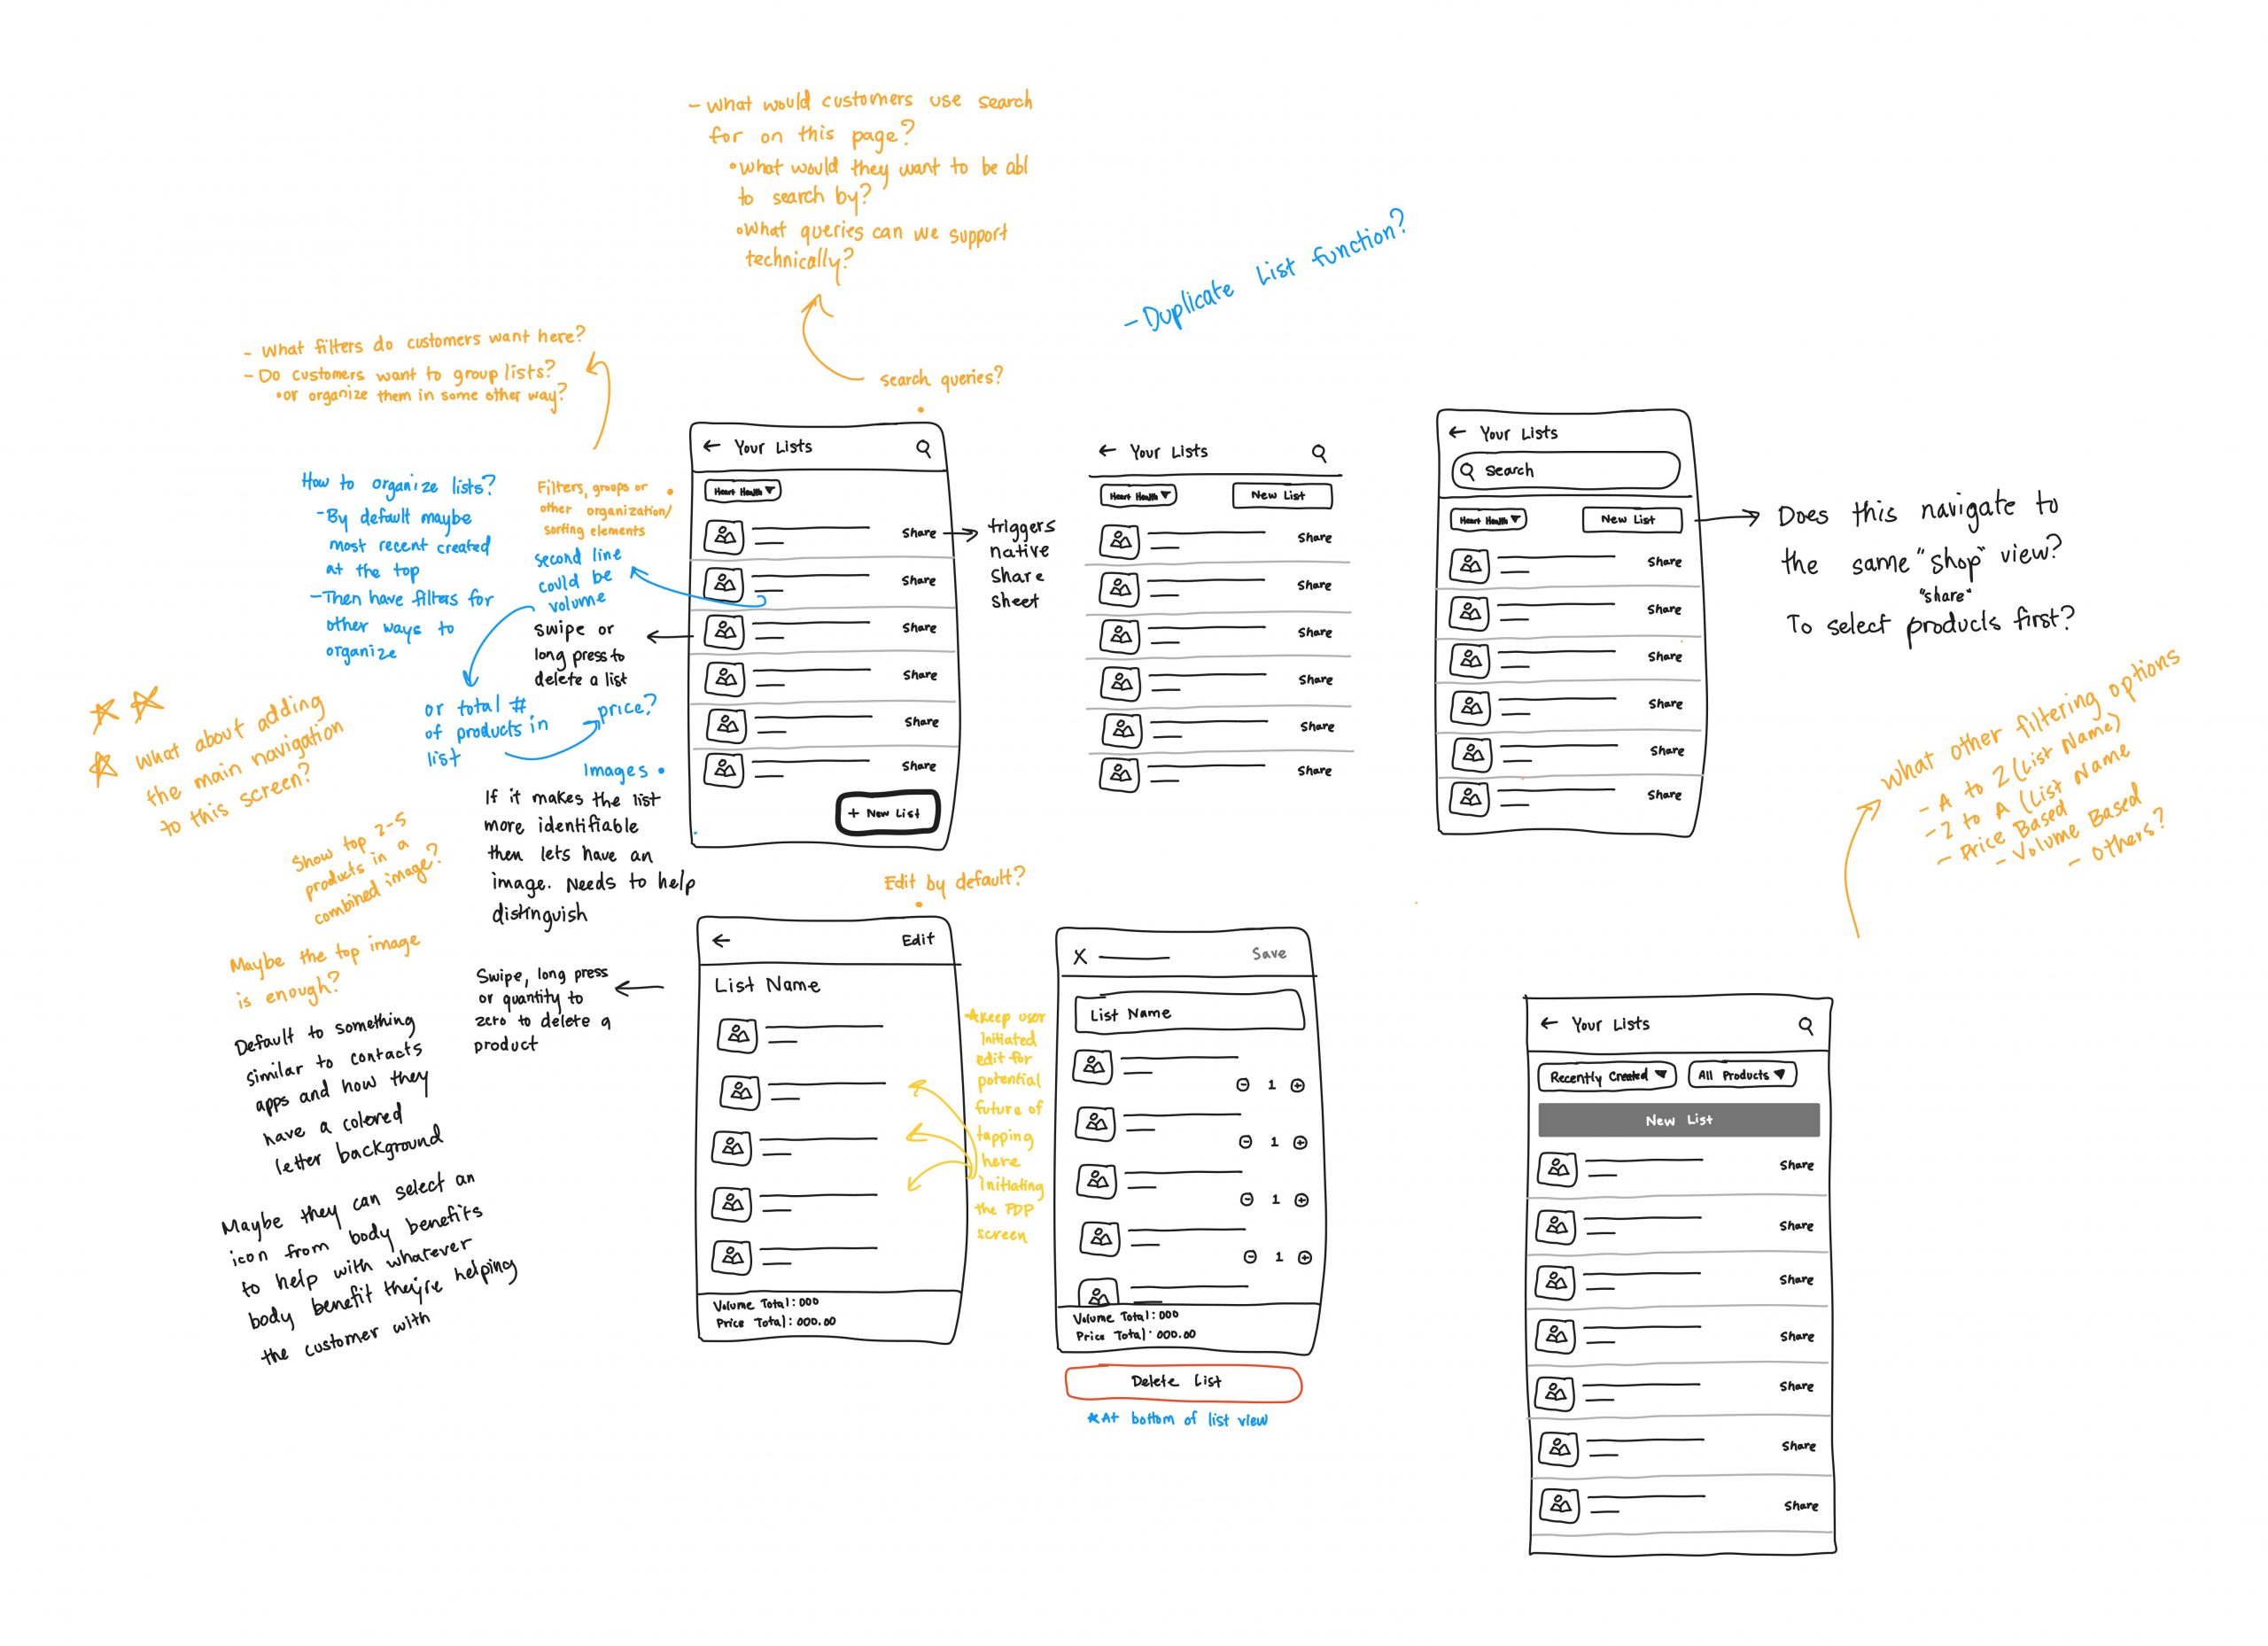 - What would customers use search
for on this page?
•What would they want to be abl
to search by?
•What queries can we support
technically?
- Duplicate List function?
search queries?
- What filters do customers want here?
- Do customers want to group lists?
•or organize them in some other way?
How to organize lists?
- By default maybe
most recent created
at the top
- Then have filters for
other ways to
organize
Filters, groups or
other organization/
sorting elements
second line
could be
volume
swipe or
long press to
delete a list
or total #
of products in
list
price?
Images
If it makes the list
more identifiable
then lets have an
image. Needs to help
distinguish
What about adding
the main navigation
to this screen?
Show top 2-5
products in a
combined image?
Maybe the top image
is enough?
Default to something
similar to contacts
apps and how they
have a colored
letter background
Maybe they can select an
icon from body benefits
to help with whatever
body benefit they're helping
the customer with
← Your Lists
Heart Health ▼
Share
Share
Share
Share
Share
Share
+ New List
triggers
native
share
sheet
← Your Lists
Heart Health ▼
New List
Share
Share
Share
Share
Share
Share
← Your Lists
Search
Heart Health ▼
New List
Share
Share
Share
Share
Share
Share
Does this navigate to
the same "shop" view?
"share"
To select products first?
What other filtering options
- A to Z (List Name)
- Z to A (List Name
- Price Based
- Volume Based
- Others?
Edit by default?
← Edit
List Name
Volume Total: 000
Price Total: 000.00
Swipe, long press
or quantity to
zero to delete a
product
*Keep user
Initiated
edit for
potential
future of
tapping
here
Initiating
the PDP
screen
X Save
List Name
1
1
1
1
Volume Total: 000
Price Total: 000.00
Delete List
*At bottom of list view
← Your Lists
Recently Created ▼
All Products ▼
New List
Share
Share
Share
Share
Share
Share
Share